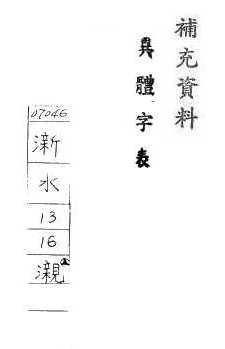 補充資料
異體字表
07046
澵
水
13
16
瀙